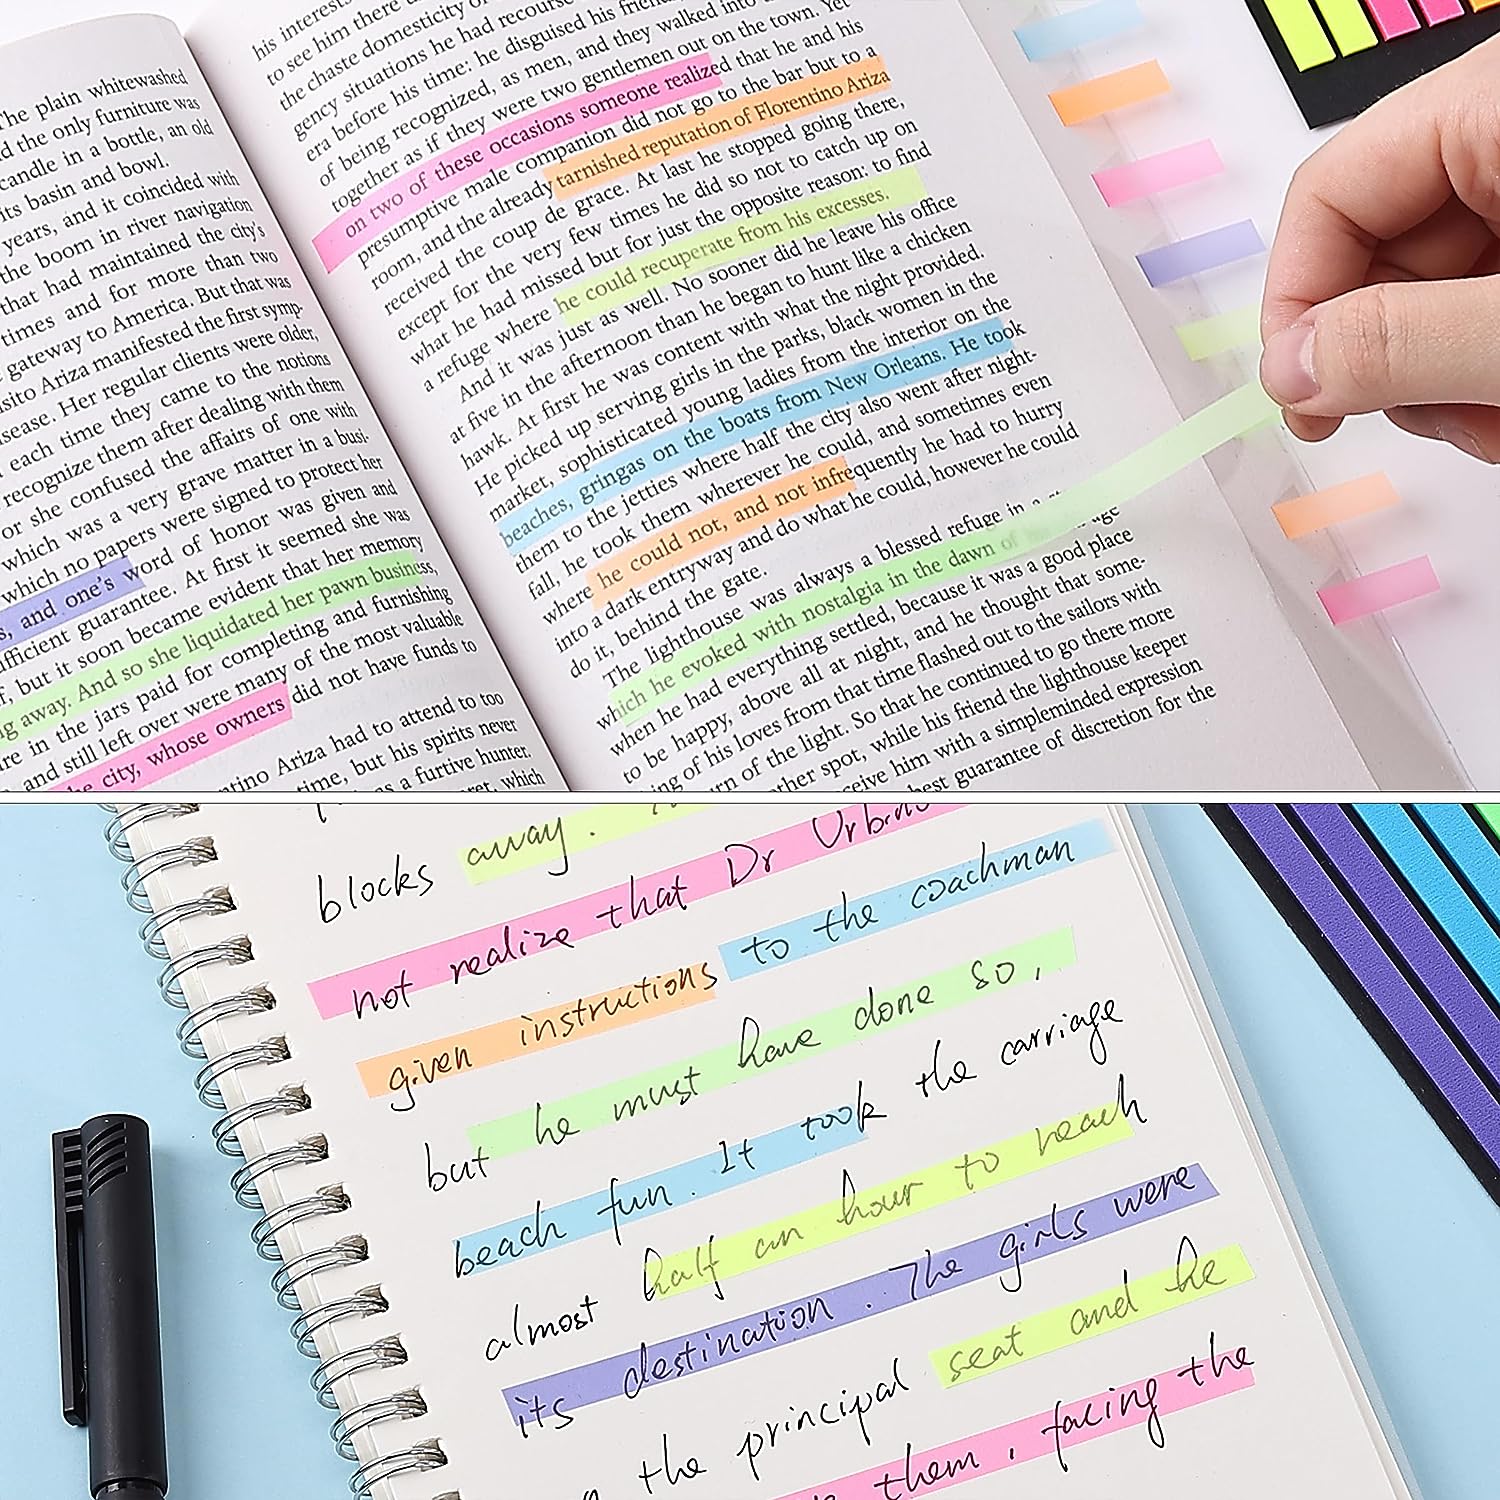 The plain whitewashed
d the only furniture was
candle in a bottle, an old
its basin and bowl.
years, and it coincided with
the boom in river navigation
that had maintained the city's
times and for more than two
gateway to America. But that was
sito Ariza manifested the first symp-
sease. Her regular clients were older,
each time they came to the notions
recognize them after dealing with them
or she confused the affairs of one with
which was a very grave matter in a busi-
which no papers were signed to protect her
s, and one's word of honor was given and
ufficient guarantee. At first it seemed she was
f, but it soon became evident that her memory
ng away. And so she liquidated her pawn business,
re in the jars paid for completing and furnishing
and still left over were many of the most valuable
he city, whose owners did not have funds to
ntino Ariza had to attend to too
time, but his spirits never
as a furtive hunter.
ret, which
his interests
to see him there
the chaste domesticity of
gency situations he had recourse
era before his time: he disguised his friend,
of being recognized, as men, and they walked into
together as if they were two gentlemen out on the town. Yet
on two of these occasions someone realized that he and his
presumptive male companion did not go to the bar but to a
room, and the already tarnished reputation of Florentino Ariza
received the coup de grace. At last he stopped going there,
except for the very few times he did so not to catch up on
what he had missed but for just the opposite reason: to find
a refuge where he could recuperate from his excesses.
And it was just as well. No sooner did he leave his office
at five in the afternoon than he began to hunt like a chicken
hawk. At first he was content with what the night provided.
He picked up serving girls in the parks, black women in the
market, sophisticated young ladies from the interior on the
beaches, gringas on the boats from New Orleans. He took
them to the jetties where half the city also went after night-
fall, he took them wherever he could, and sometimes even
where he could not, and not infrequently he had to hurry
into a dark entryway and do what he could, however he could
do it, behind the gate.
The lighthouse was always a blessed refuge in a
which he evoked with nostalgia in the dawn of age
when he had everything settled, because it was a good place
to be happy, above all at night, and he thought that some-
ing of his loves from that time flashed out to the sailors with
urn of the light. So that he continued to go there more
other spot, while his friend the lighthouse keeper
ceive him with a simpleminded expression
best guarantee of discretion for the
blocks away.
not realize that Dr Urbino
given instructions to the coachman
but he must have done so,
beach fun. It took the carriage
almost half an hour to reach
its destination. The girls were
the principal seat and he
them, facing the